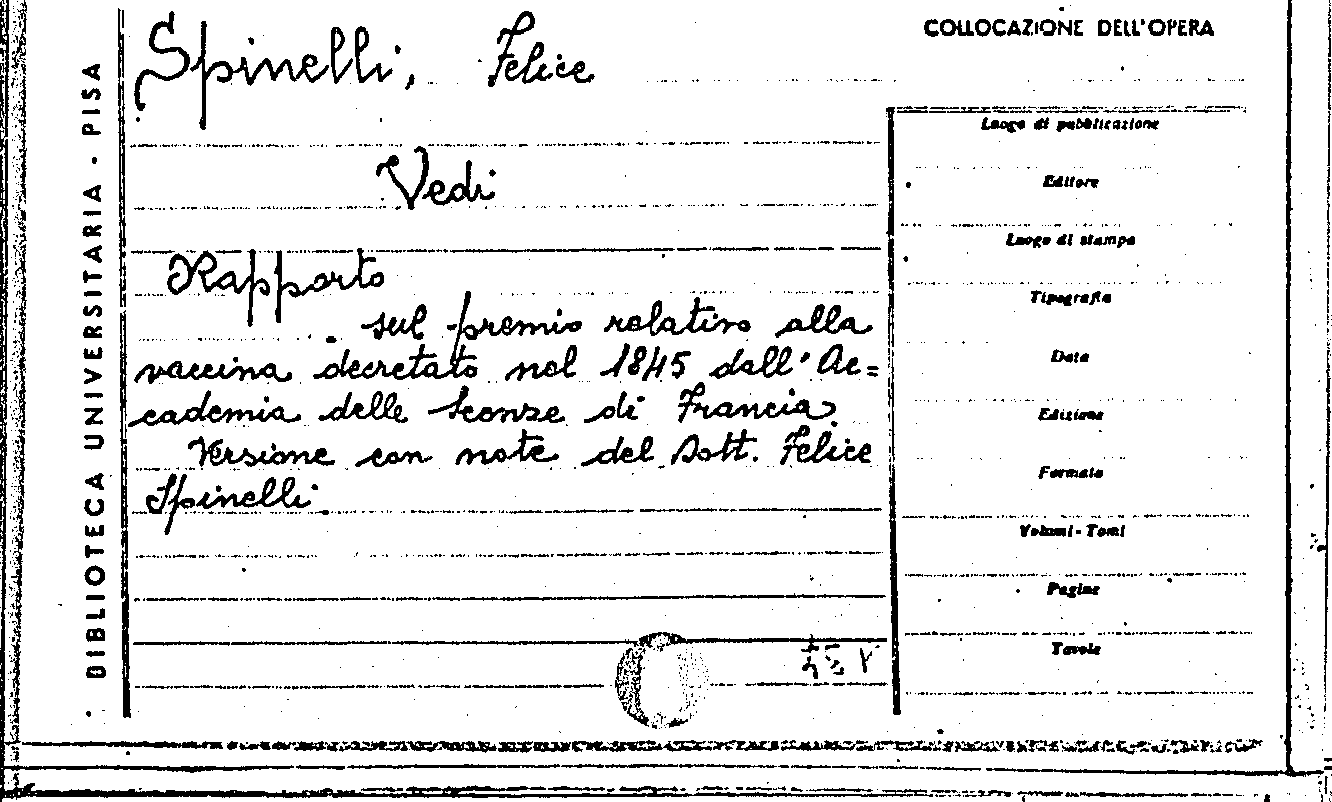 BIBLIOTECA UNIVERSITARIA - PISA
Spinelli, Felice
Vedi
Rapporto
sul premio relativo alla
vaccina decretato nel 1845 dall'Ac=
cademia delle Scenze di Francia.
Versione con note del Dott. Felice
Spinelli.
COLLOCAZIONE DELL'OPERA
Luogo di pubblicazione
Editore
Luogo di stampa
Tipografia
Data
Edizione
Formato
Volumi - Tomi
Pagine
Tavole